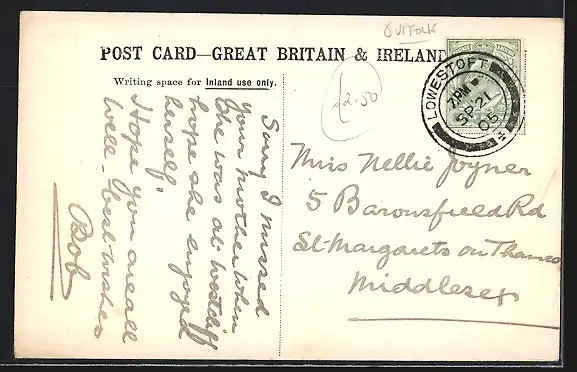 SUFFOLK
POST CARD—GREAT BRITAIN & IRELAND
Writing space for Inland use only.
£2.50
LOWESTOFT
7.PM
SP 21
05
Sorry I missed
your mother when
she was at Westcliff
hope she enjoyed
herself.
Hope you are all
well - best wishes
Bob
Miss Nellie Joyner
5 Baronsfield Rd
St-Margarets on Thames
Middlesex